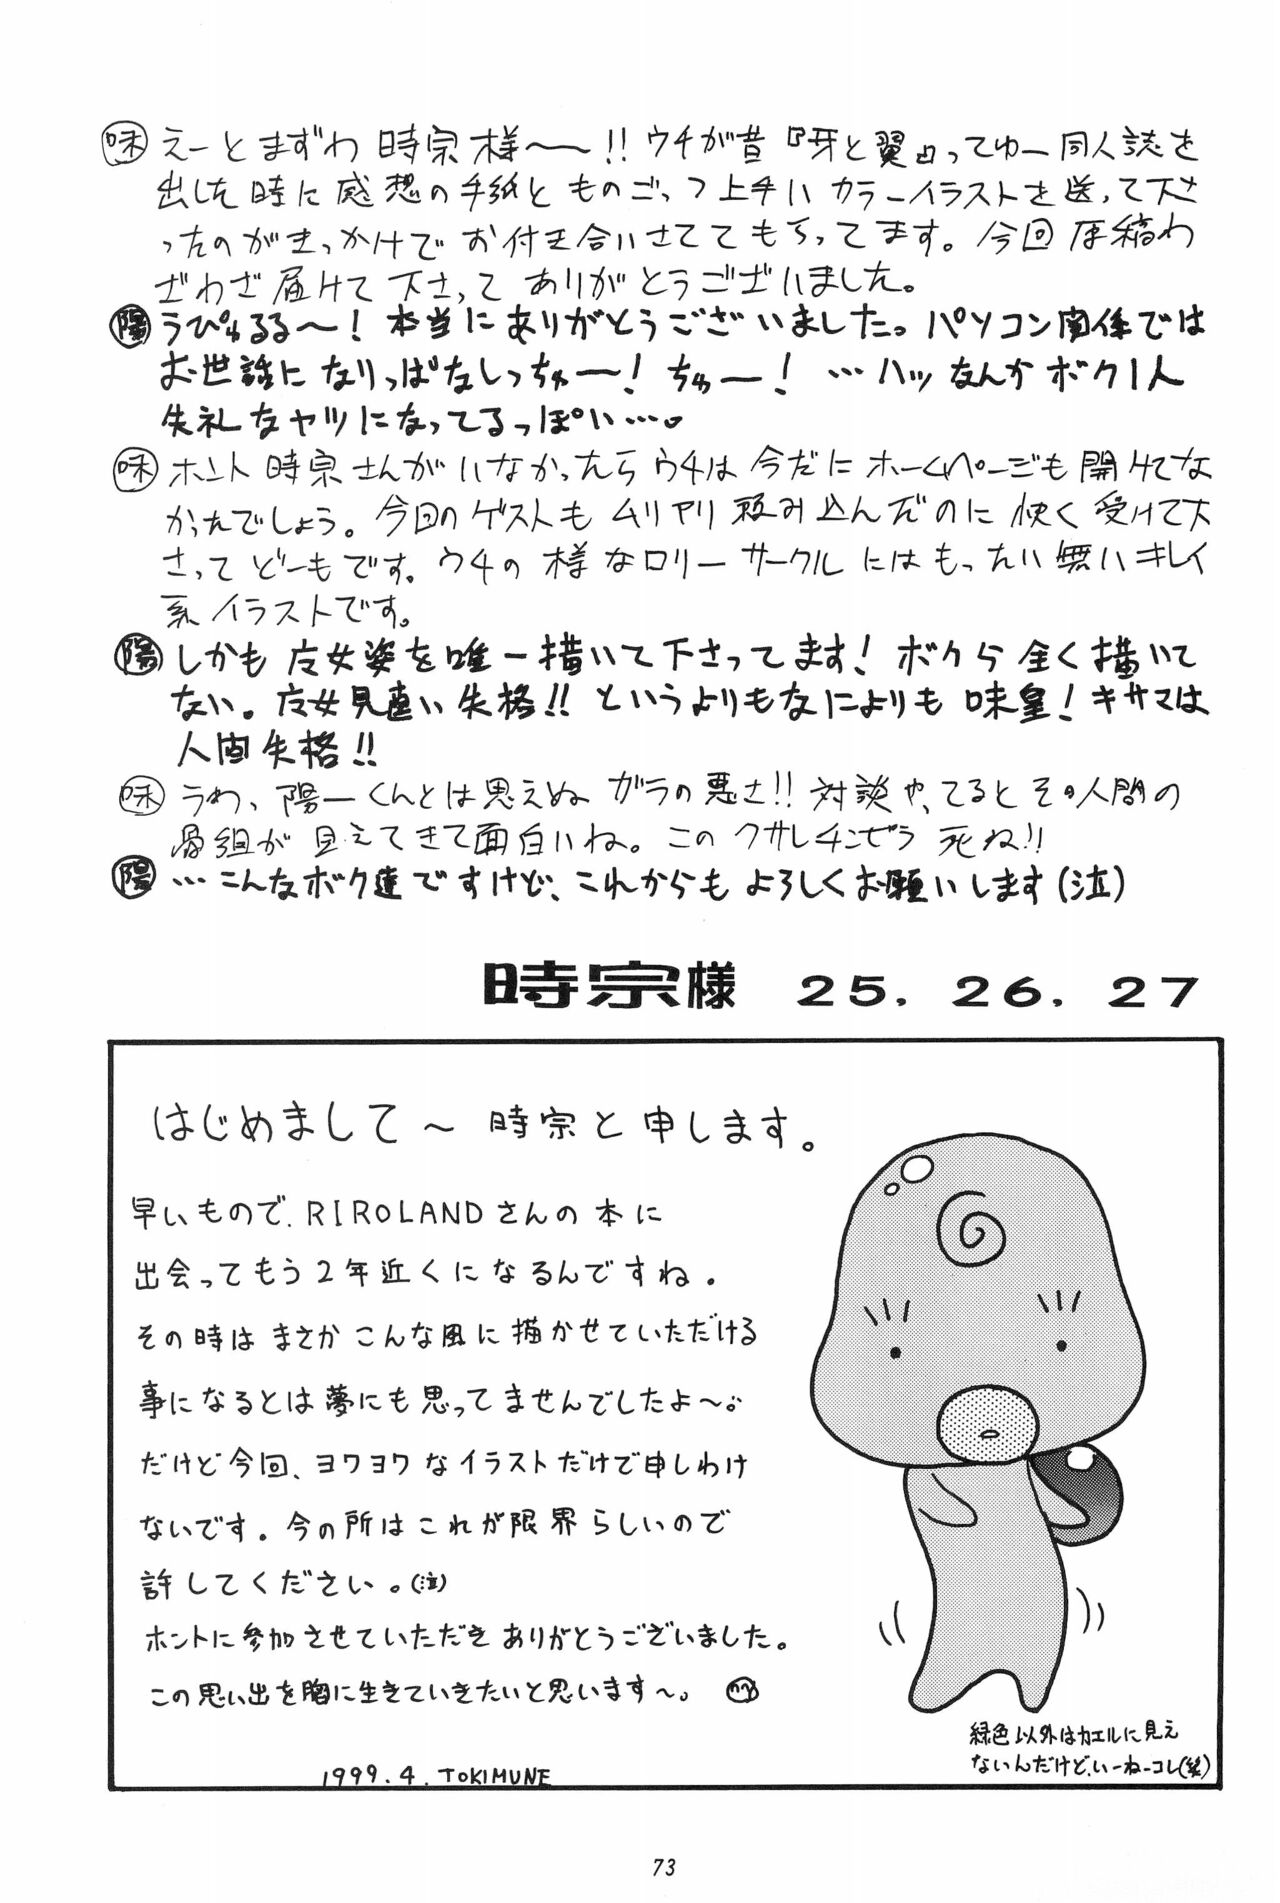 味 えーとまずわ 時宗様〜!! ウチが昔『牙と翼』ってゆー同人誌を
出した時に感想の手紙とものごっつ上手いカラーイラストを送って下さ
ったのがきっかけでお付き合いさせてもらってます。今回原稿わ
ざわざ届けて下さってありがとうございました。
陽 うぴゅるる〜! 本当にありがとうございました。パソコン関係では
お世話になりっぱなしっちゅー! ちゅー! …ハッなんかボク1人
失礼なヤツになってるっぽい…。
味 ホント時宗さんがいなかったらウチは今だにホームページも開けてな
かったでしょう。今回のゲストもムリヤリ頼み込んだのに快く受けて下
さってどーもです。ウチの様なロリーサークルにはもったい無いキレイ
系イラストです。
陽 しかも 女姿を唯一描いて下さってます! ボクら全く描いて
ない。 女見直い失格!! というよりもなによりも 味皇! キサマは
人間失格!!
味 うわっ陽一くんとは思えぬガラの悪さ!! 対談やってるとその人間の
骨組が見えてきて面白いね。このクサレチンピラ 死ね!!
陽 …こんなボク達ですけど、これからもよろしくお願いします(泣)
時宗様 25. 26. 27
はじめまして〜 時宗と申します。
早いもので、RIROLANDさんの本に
出会ってもう2年近くになるんですね。
その時はまさかこんな風に描かせていただける
事になるとは夢にも思ってませんでしたよ〜。
だけど今回、ヨワヨワなイラストだけで申しわけ
ないです。今の所はこれが限界らしいので
許してください。(泣)
ホントに参加させていただきありがとうございました。
この思い出を胸に生きていきたいと思います〜。
1999.4. TOKIMUNE
緑色以外はカエルに見え
ないんだけど、いーねーコレ(笑)
73